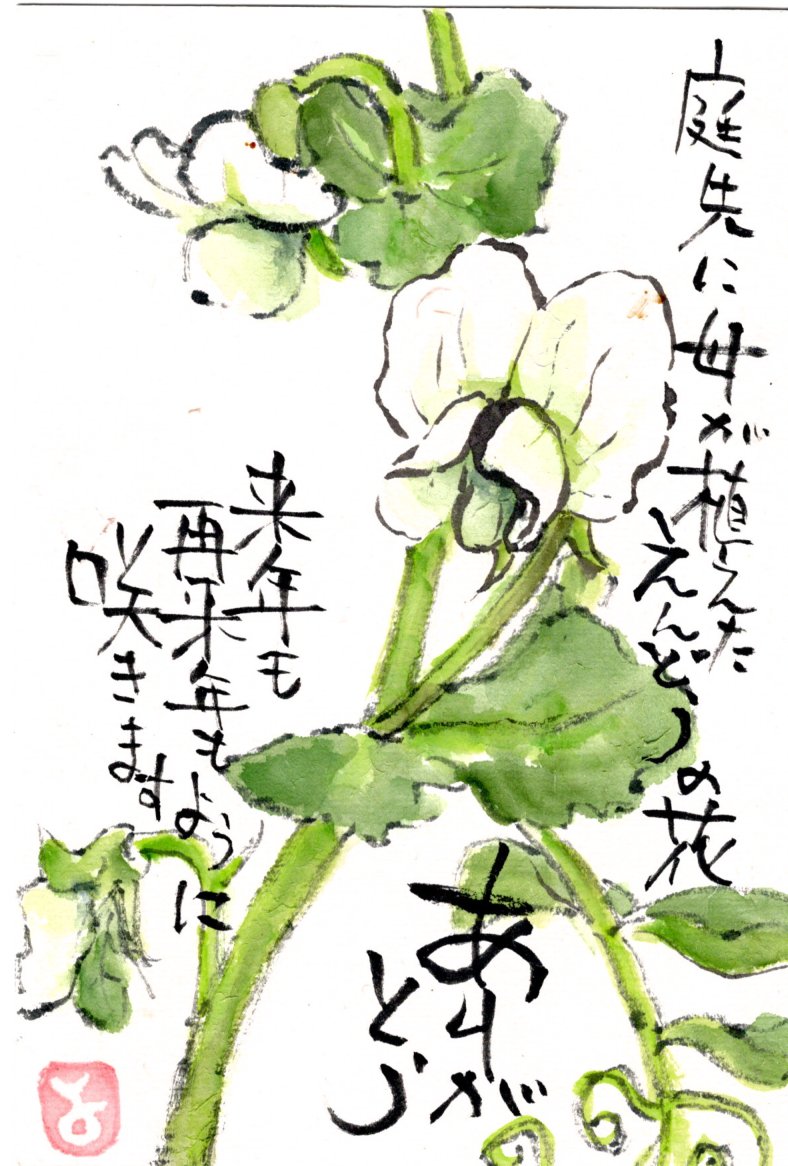 庭先に母が植えた
えんどうの花
ありが
とう
来年も
再来年も
咲きます
ように